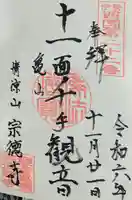 令和六年
十一月廿一日
奉拝
十一面千手観音
亀山
清凉山 宗徳寺